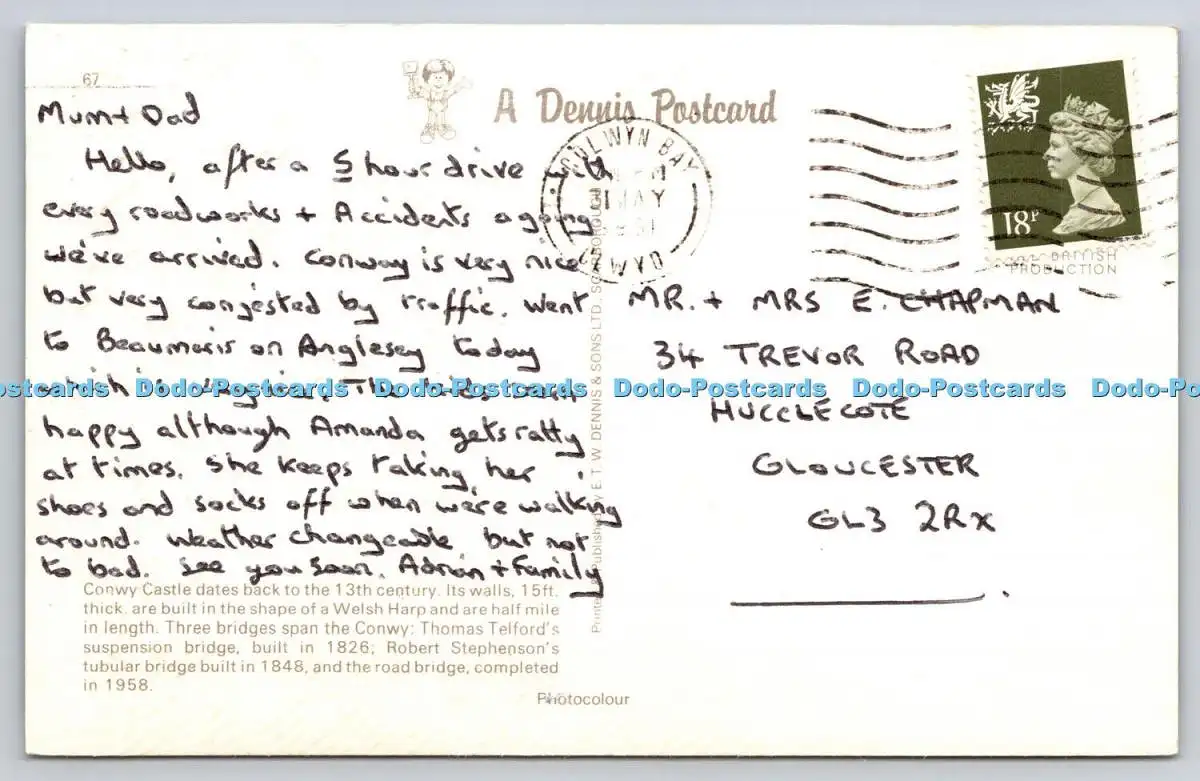 67
A Dennis Postcard
Mum + Dad
Hello, after a 5 hour drive with
every roadworks + Accidents agoing
we've arrived. Conway is very nice
but very congested by traffic. Went
to Beaumaris on Anglesey today
happy although Amanda gets ratty
at times. She keeps taking her
shoes and socks off when we're walking
around. Weather changeable, but not
to bad. See you soon. Adrian + Family
Conwy Castle dates back to the 13th century. Its walls, 15ft.
thick. are built in the shape of a Welsh Harp and are half mile
in length. Three bridges span the Conwy: Thomas Telford's
suspension bridge, built in 1826; Robert Stephenson's
tubular bridge built in 1848, and the road bridge, completed
in 1958.
Photocolour
Published by E. T. W. DENNIS & SONS LTD. SCARBOROUGH
COLWYN BAY
MAY
CLWYD
18P
BRITISH
PRODUCTION
MR. + MRS E. CHAPMAN
34 TREVOR ROAD
HUCCLECOTE
GLOUCESTER
GL3 2RX
Dodo-Postcards Dodo-Postcards Dodo-Postcards Dodo-Postcards Dodo-Postcards